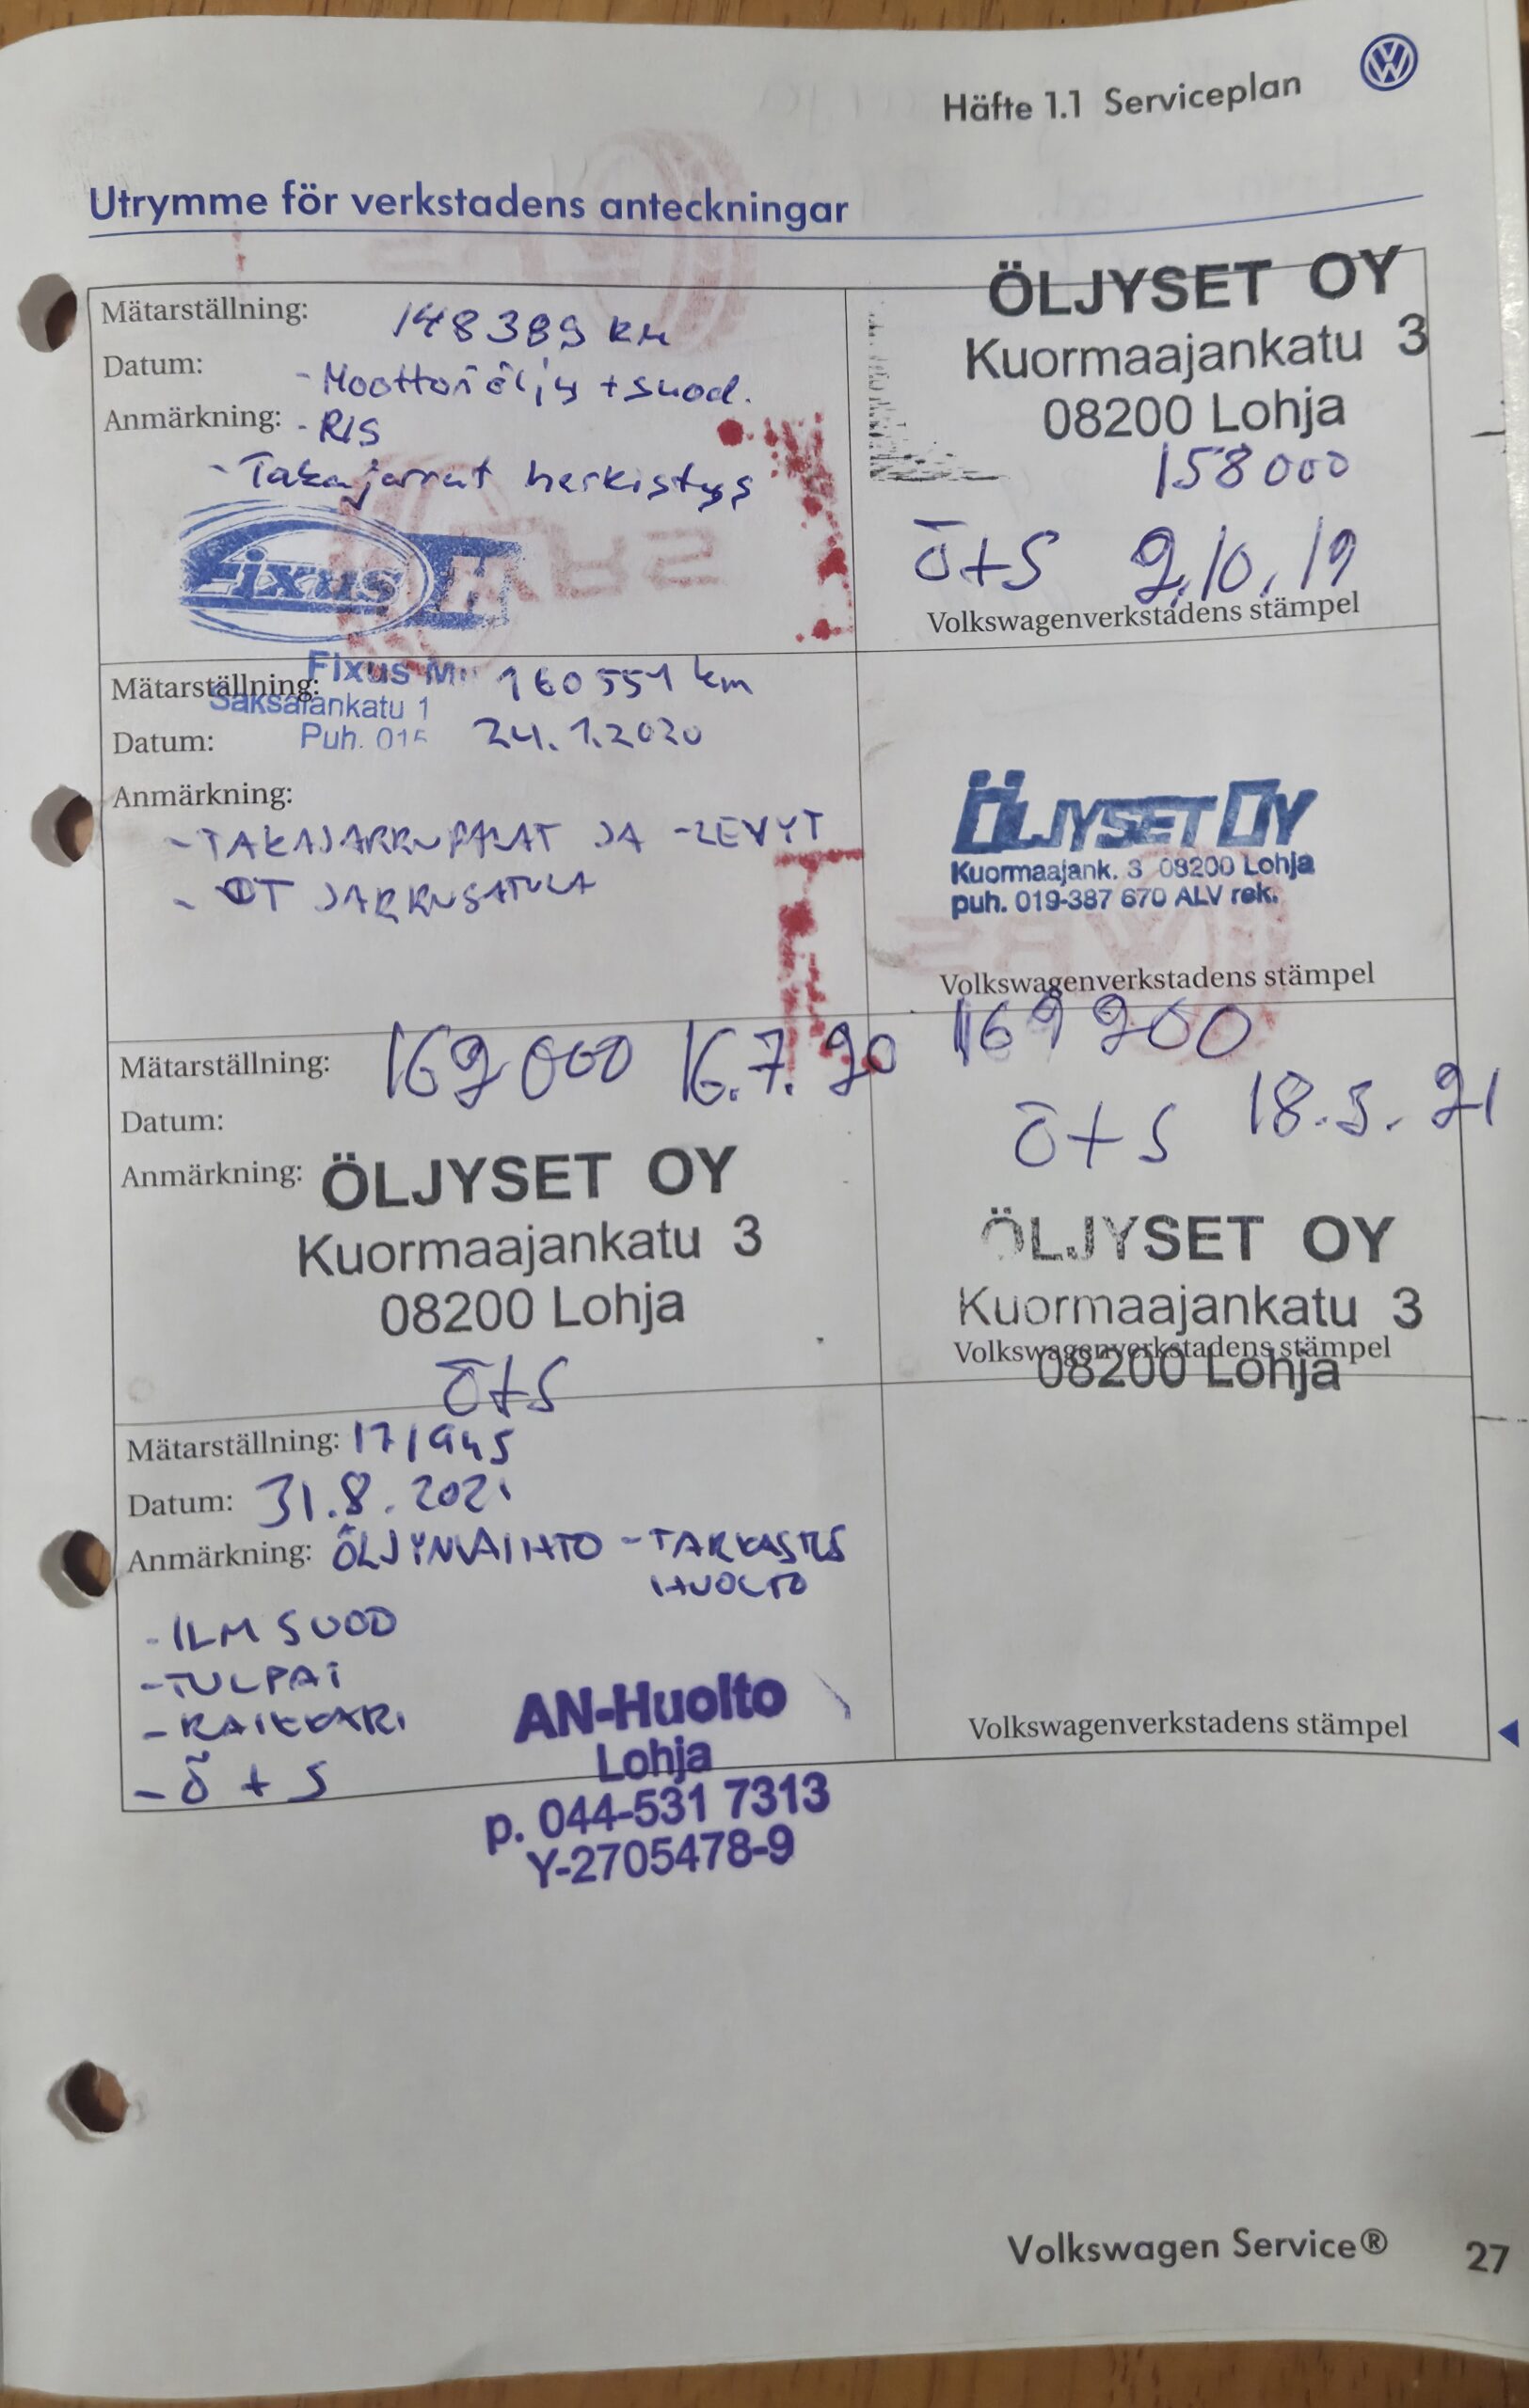 Häfte 1.1 Serviceplan
Utrymme för verkstadens anteckningar
Mätarställning: 148389 km
Datum:
- Moottoriöljy + suod.
Anmärkning: - RIS
- Takajarrut herkistys
Fixus
ÖLJYSET OY
Kuormaajankatu 3
08200 Lohja
158000
Ö+S 2.10.19
Volkswagenverkstadens stämpel
Fixus
Mätarställning: 160551 km
Saksalankatu 1
Datum: 24.1.2020
Puh. 015
Anmärkning:
- TAKAJARRUPALAT JA -LEVYT
- OT JARRUSATULA
ÖLJYSET OY
Kuormaajank. 3 08200 Lohja
puh. 019-387 670 ALV rek.
Volkswagenverkstadens stämpel
Mätarställning: 162000 16.7.20
Datum:
Anmärkning:
ÖLJYSET OY
Kuormaajankatu 3
08200 Lohja
Ö+S
169200
Ö+S 18.5.21
ÖLJYSET OY
Kuormaajankatu 3
Volkswagenverkstadens stämpel
08200 Lohja
Mätarställning: 171945
Datum: 31.8.2021
Anmärkning: ÖLJYNVAIHTO - TARKASTUS
HUOLTO
- ILM SUOD
- TULPAT
- RAIKKARI
- Ö + S
AN-Huolto
Lohja
p. 044-531 7313
Y-2705478-9
Volkswagenverkstadens stämpel
Volkswagen Service®
27